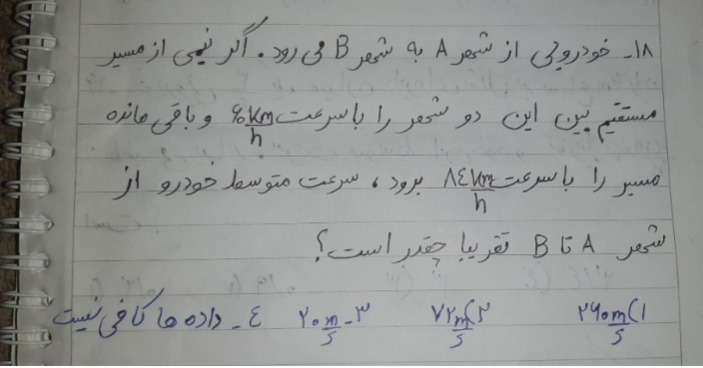 ۱۸- خودرویی از شهر A به شهر B می رود. اگر نیمی از مسیر
مستقیم بین این دو شهر را با سرعت ۶۰ km/h و باقی مانده
مسیر را با سرعت ۸۴ km/h برود، سرعت متوسط خودرو از
شهر A تا B تقریبا چقدر است؟
۱) ۲۶۰ m/s ۲) ۷۲ m/s ۳- ۲۰ m/s ۴- داده ها کافی نیست